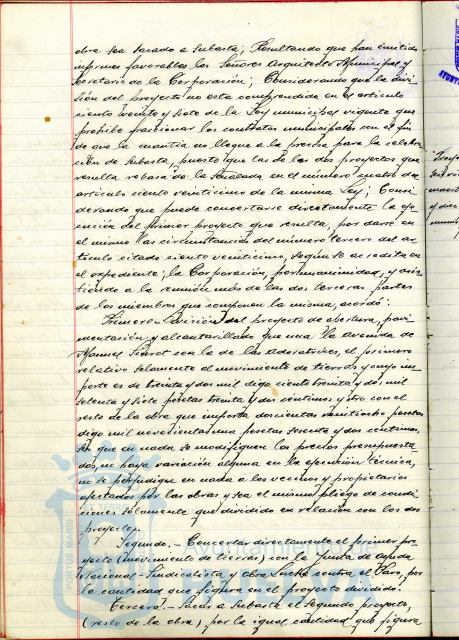 obra sea sacado a subasta; Resultando que han emitido
informes favorables los Señores Arquitecto Municipal y
Secretario de la Corporación; Considerando que la divi-
sión del proyecto no esta comprendida en el articulo
ciento veinte y siete de la Ley municipal vigente que
prohibe fraccionar los contratos municipales con el fin
de que la cuantia no llegue a la precisa para la celebra-
ción de subasta, puesto que las de los dos proyectos que
resulta rebasa de la señalada en el número cuatro del
articulo ciento veinticinco de la misma Ley; Consi-
derando que puede concertarse directamente la eje-
cución del primer proyecto que resulta, por darse en
el mismo las circunstancias del número tercero del ar-
ticulo citado ciento veinticinco, según se acredita en
el expediente; la Corporación, por unanimidad, y asis-
tiendo a la reunión más de las dos terceras partes
de los miembros que componen la misma, acordó:
Primero.- División del proyecto de apertura, pavi-
mentación y alcantarillado que una la avenida de
Manuel Siurot con la de las Adoratrices, el primero
relativo solamente al movimiento de tierras y cuyo im-
porte es de treinta y dos mil digo ciento treinta y dos mil
setenta y siete pesetas treinta y dos centimos y otro con el
resto de la obra que importa doscientas veintiocho pesetas
digo mil novecientas una pesetas sesenta y dos centimos,
sin que en nada se modifiquen los precios presupuesta-
dos, no haya variación alguna en la ejecución técnica,
no se perjudique en nada a los vecinos y propietarios
afectados por las obras y sea el mismo pliego de condi-
ciones solamente que dividido en relación con los dos
proyectos.
Segundo.- Concertar directamente el primer pro-
yecto (movimiento de tierras) con la Junta de ayuda
Nacional-Sindicalista y obra Lucha contra el Paro, por
la cantidad que figura en el proyecto dividido.
Tercero.- Sacar a subasta el segundo proyecto,
(resto de la obra), por la igual cantidad que figura